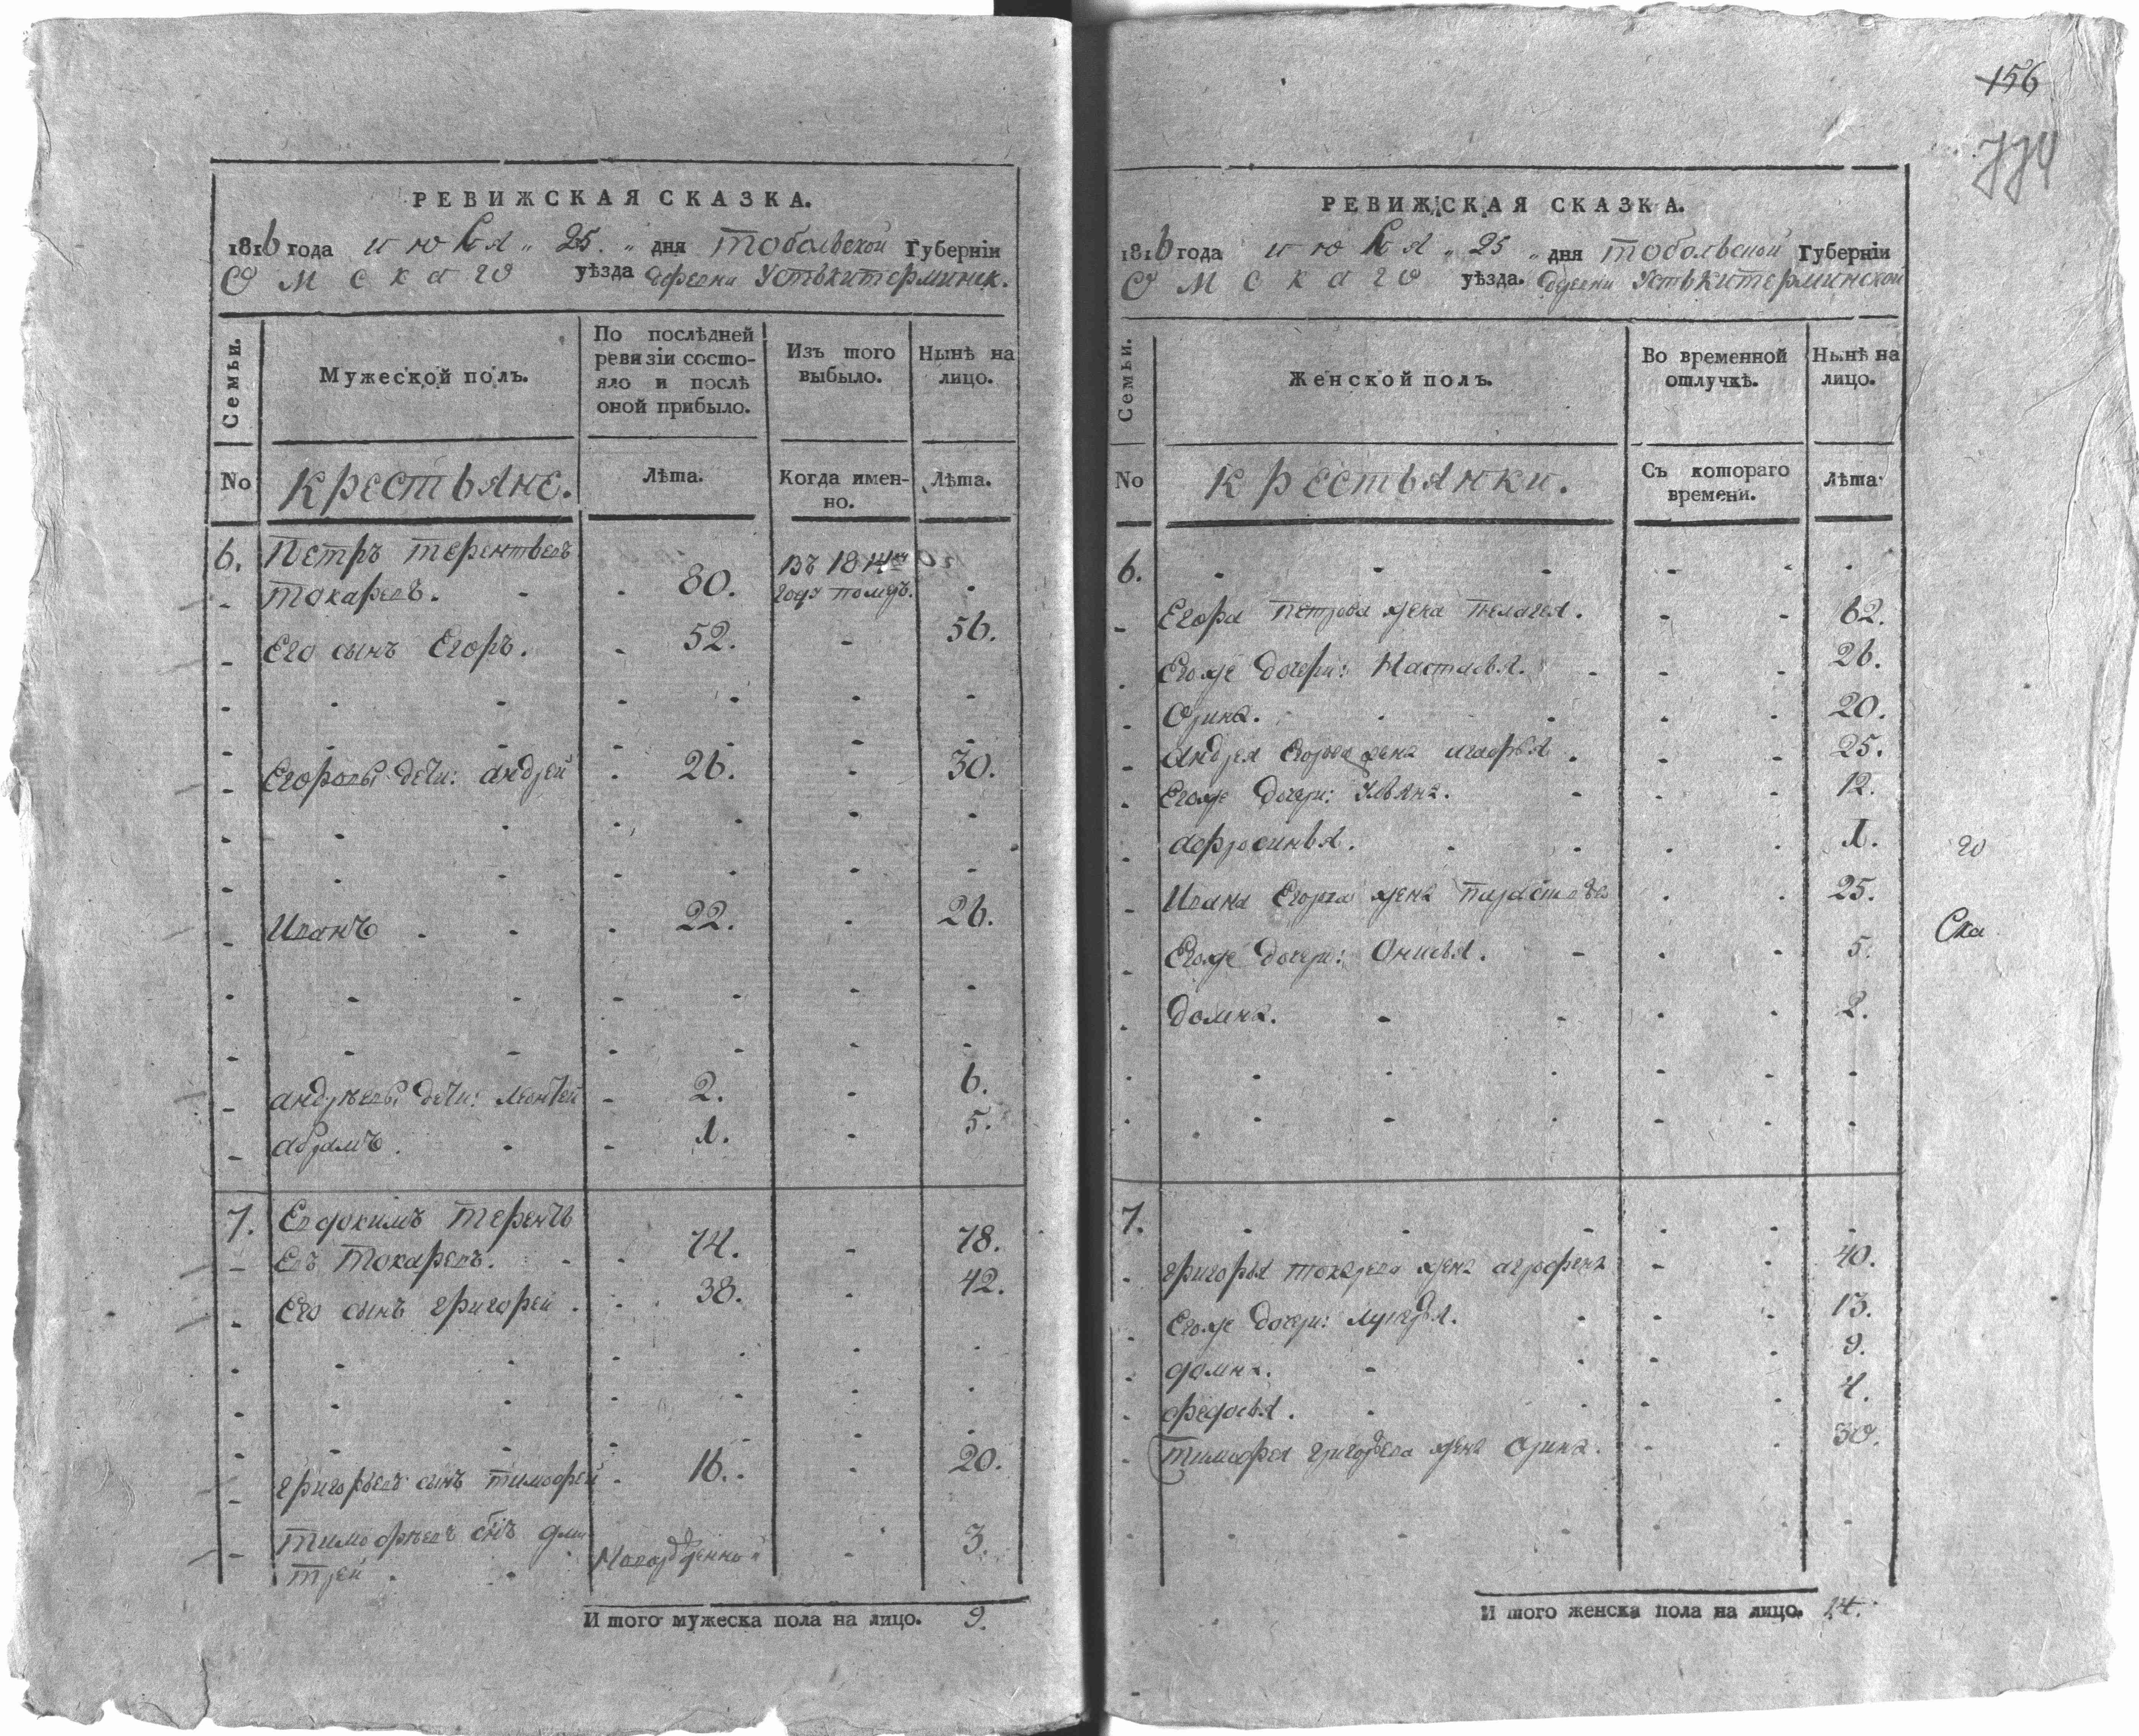 РЕВИЖСКАЯ СКАЗКА.
1816 года июля 25. дня Тобольской Губерніи
Омскаго уѣзда деревни Устькитерминск.
Семьи.
Мужеской полъ.
По послѣдней
ревизіи состо-
яло и послѣ
оной прибыло.
Изъ того
выбыло.
Нынѣ на
лицо.
No
Крестьяне.
Лѣта.
Когда имен-
но.
Лѣта.
6. Петръ Терентьевъ Въ 1814мъ
Токаревъ. 80. году помръ.
Его сынъ Егоръ. 52. 56.
Егоровы дети: Андрей 26. 30.
Иванъ 22. 26.
Андреевы дети: Леонтей 2. 6.
Абрамъ. 1. 5.
7. Евдокимъ Теренть
евъ Токаревъ. 74. 78.
Его сынъ Григорей 38. 42.
Григорьевъ сынъ Тимофей 16. 20.
Тимофеевъ сынъ Дми
трей Новорожденной 3.
Итого мужеска пола на лицо. 9.
156
774
РЕВИЖСКАЯ СКАЗКА.
1816 года июля 25 дня Тобольской Губерніи
Омскаго уѣзда. деревни Устькитерминской
Семьи.
Женской полъ.
Во временной
отлучкѣ.
Нынѣ на
лицо.
No
Крестьянки.
Съ котораго
времени.
Лѣта
6.
Егора Петрова жена Пелагея. 62.
Егоже дочери: Настасья. 26.
Орина. 20.
Андрея Егорова жена Агафья 25.
Егоже дочери: Ульяна. 12.
Афросинья. 1.
20
Ивана Егорова жена 25.
Ска
Егоже дочери: Онисья. 5.
Домна. 2.
7.
Григорья Токарева жена Агрофена 40.
Егоже дочери: Лукерья. 13.
Домна. 9.
Федосья. 4.
Тимофея Григорьева жена Орина. 30.
Итого женска пола на лицо. 14.